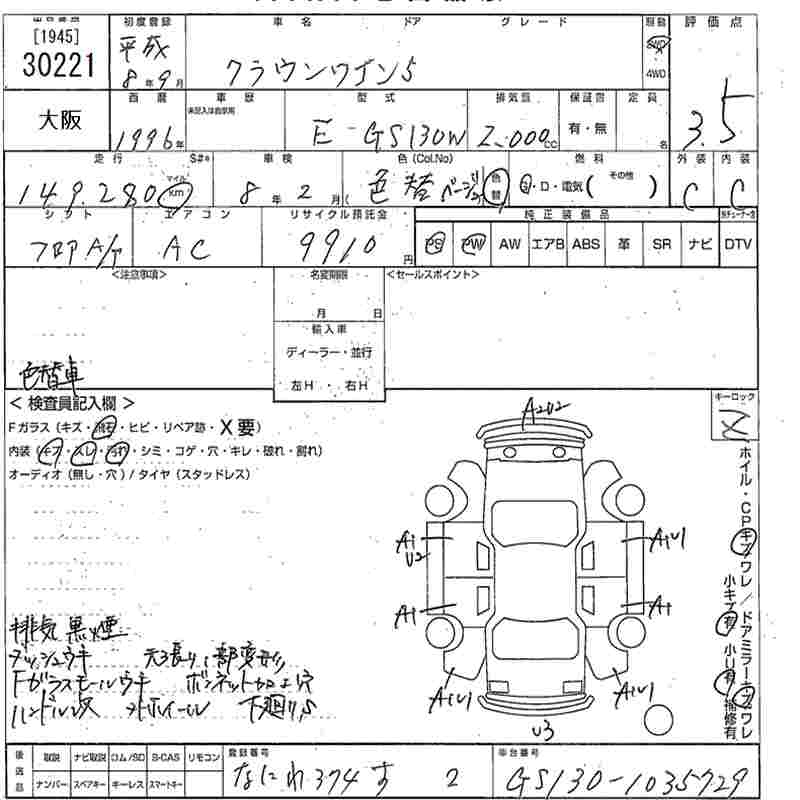 [1945]
30221
初度登録 車名 ドア グレード 駆動 評価点
平成
8年9月
クラウンワゴン5
4WD
3.5
大阪
西暦 車歴 型式 排気量 保証書 定員
未記入は自家用
1996年
E-GS130W
2,000cc
有・無
名
走行 S#* 車検 色(Col.No) 燃料 外装 内装
149,280
マイル
km
8年2月(
色替 ベージュ
色替
G・D・電気( その他 )
C C
シフト エアコン リサイクル預託金 純正装備品
フロア A/T AC 9910円
PS PW AW エアB ABS 革 SR ナビ DTV
<注意事項> 名変期限 <セールスポイント>
月 日
輸入車
ディーラー・並行
左H・右H
色替車
<検査員記入欄>
キーロック
Fガラス(キズ・飛石・ヒビ・リペア跡・X要)
内装(キズ・スレ・汚れ・シミ・コゲ・穴・キレ・破れ・割れ)
オーディオ(無し・穴)/タイヤ(スタッドレス)
A2U2
A1
U2
A1U1
A1
A1
A1U1
A1U1
U3
ホイル・CPキズワレ/ドアミラーキズワレ
小キズ有 小U有 補修有
排気 黒煙
ダッシュウキ
Fガラスモールウキ
ハンドル
下廻り
後送品
取説 ナビ取説 ロム/SD B-CAS リモコン
ナンバー スペアキー キーレス スマートキー
登録番号
なにわ374 す 2
車台番号
GS130-1035729